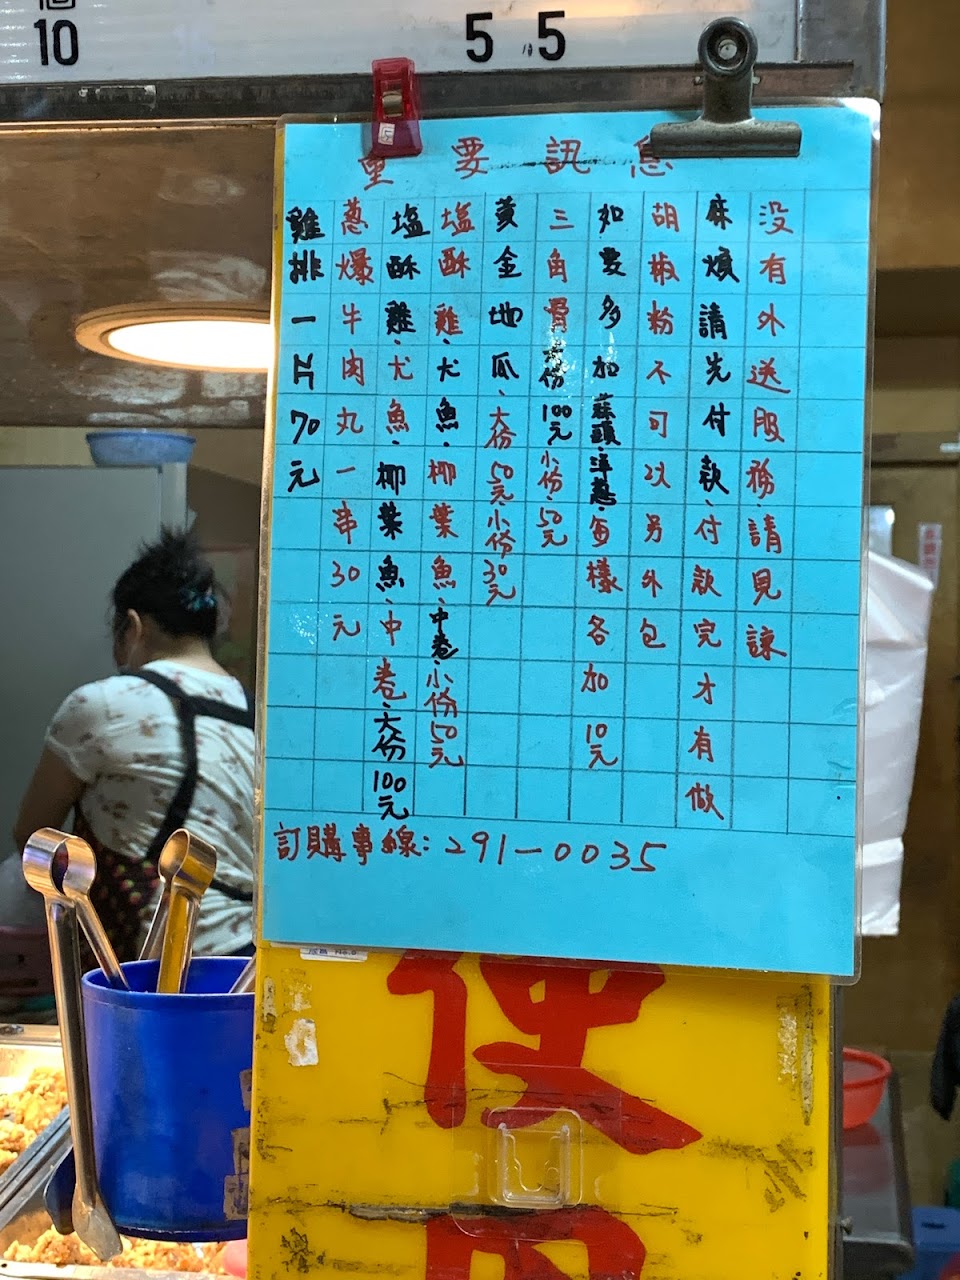 個
10
5
5
重要訊息
雞排一片70元
葱爆牛肉丸一串30元
塩酥雞、犬魚、柳葉魚、中卷、大份100元
塩酥雞、犬魚、柳葉魚、中卷、小份50元
黃金地瓜、大份50元小份30元
三角骨大份100元小份50元
如要多加蒜頭、洋葱、每樣各加10元
胡椒粉不可以另外包
麻煩請先付款、付款完才有做
没有外送服務、請見諒
訂購專線:291-0035
便